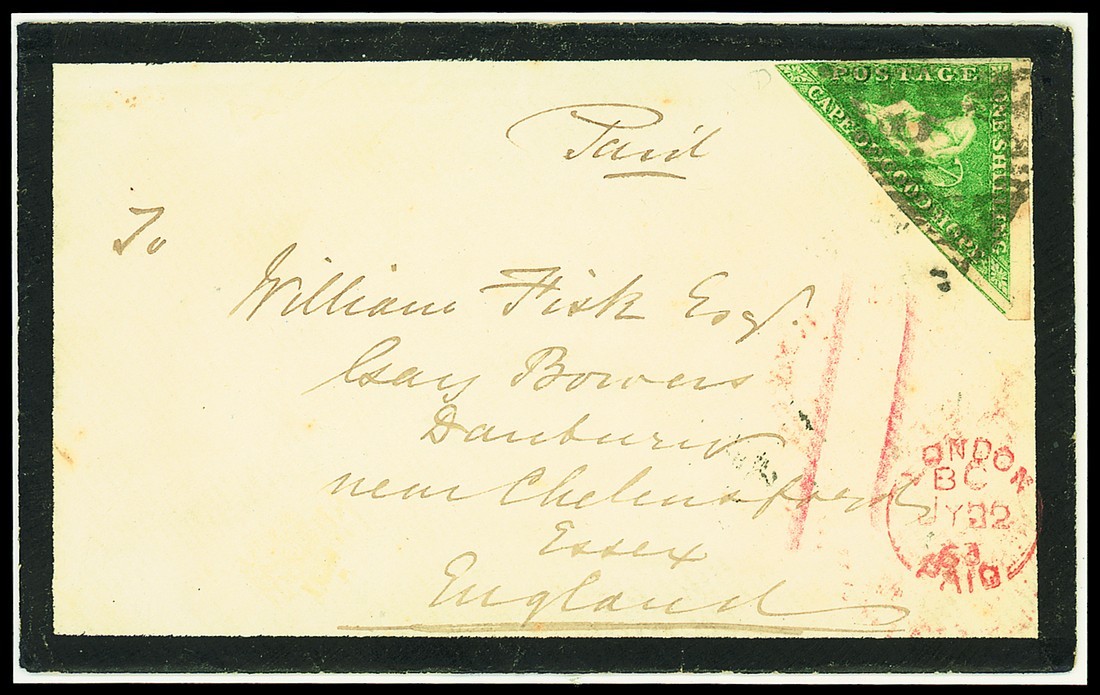 POSTAGE
CAPE OF GOOD HOPE
ONE SHILLING
Paid
To
William Fisk Esq.
Gay Bowers
Danbury
near Chelmsford
Essex
England
LONDON
BC
JY 22
63
PAID